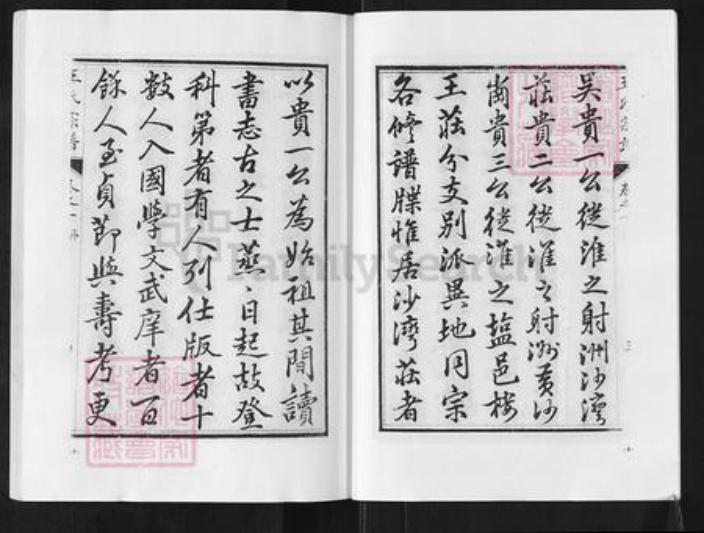 吳貴一公從淮之射洲沙灣
莊貴二公從淮之射洲黃沙
崗貴三公從淮之塩邑楼
王莊分支别派異地同宗
各修譜牒惟居沙灣莊者
以貴一公為始祖其間讀
書志古之士蒸〻日起故登
科第者有人列仕版者十
數人入國學文武庠者百
餘人至貞節與壽考更
王氏宗譜
卷之一
FamilySearch